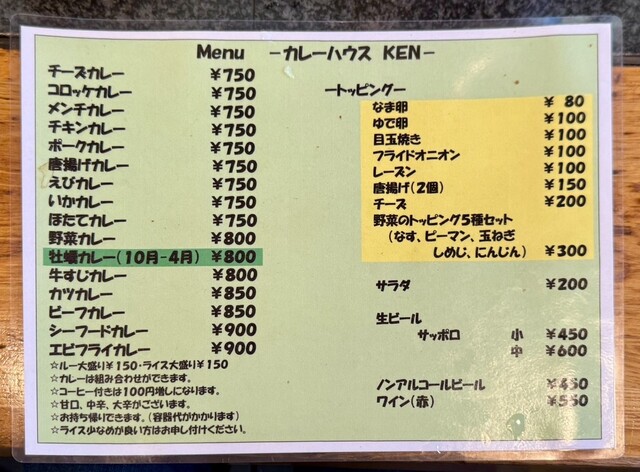 Menu －カレーハウス KEN－
チーズカレー ￥750
コロッケカレー ￥750
メンチカレー ￥750
チキンカレー ￥750
ポークカレー ￥750
唐揚げカレー ￥750
えびカレー ￥750
いかカレー ￥750
ほたてカレー ￥750
野菜カレー ￥800
牡蠣カレー(10月-4月) ￥800
牛すじカレー ￥800
カツカレー ￥850
ビーフカレー ￥850
シーフードカレー ￥900
エビフライカレー ￥900
☆ルー大盛り￥150・ライス大盛り￥150
☆カレーは組み合わせができます。
☆コーヒー付きは100円増しになります。
☆甘口、中辛、大辛がございます。
☆お持ち帰りできます。(容器代がかかります)
☆ライス少なめが良い方はお申し付けください。
－トッピング－
なま卵 ￥80
ゆで卵 ￥100
目玉焼き ￥100
フライドオニオン ￥100
レーズン ￥100
唐揚げ(2個) ￥150
チーズ ￥200
野菜のトッピング5種セット
(なす、ピーマン、玉ねぎ
しめじ、にんじん) ￥300
サラダ ￥200
生ビール
サッポロ 小 ￥450
中 ￥600
ノンアルコールビール ￥450
ワイン(赤) ￥550